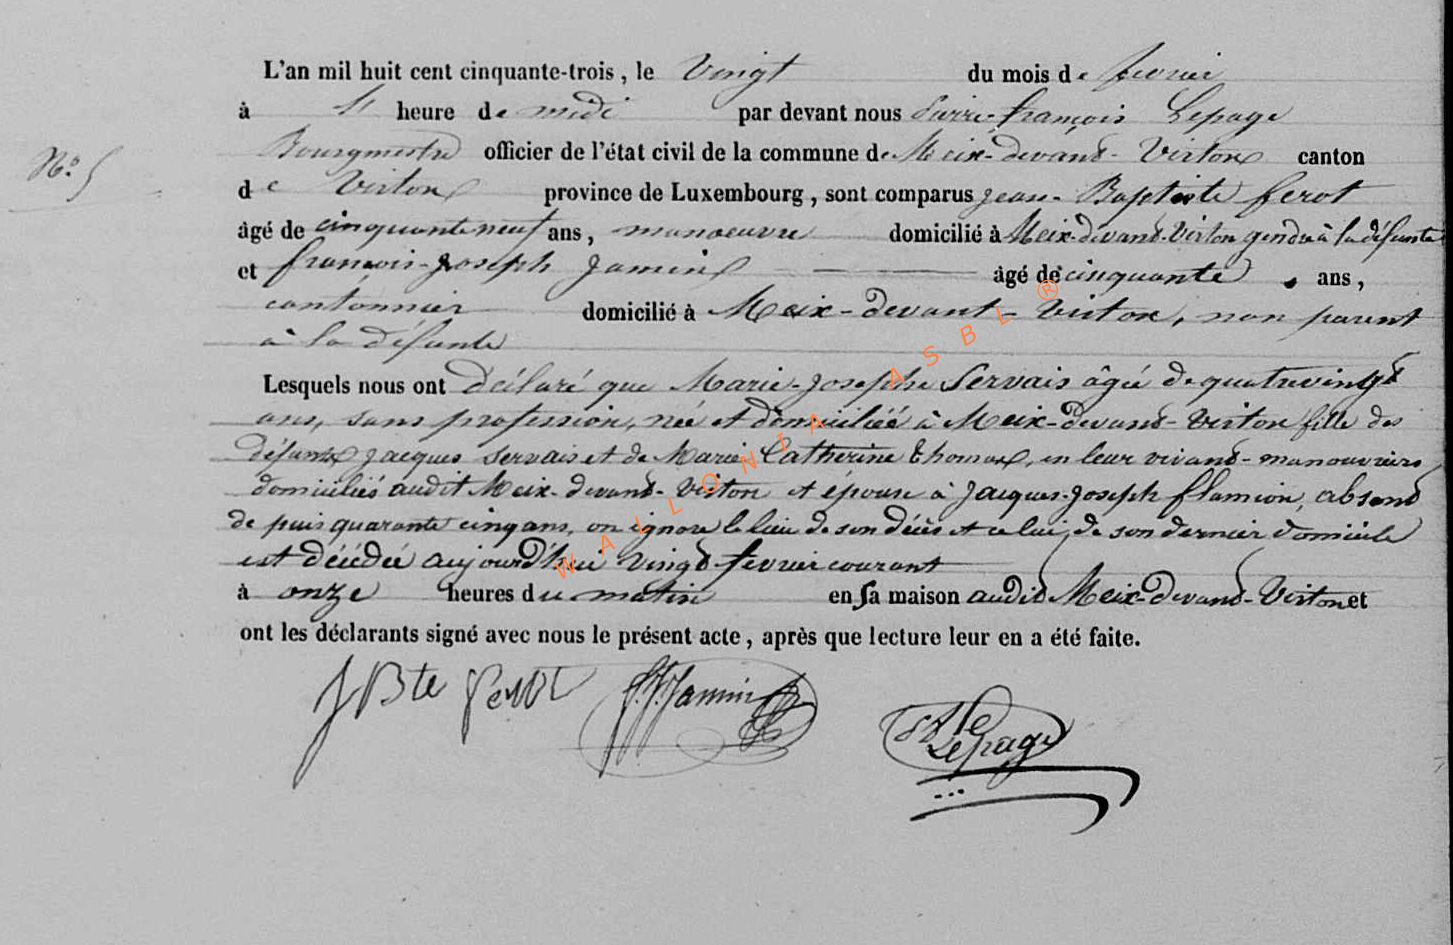 L'an mil huit cent cinquante-trois, le Vingt du mois de fevrier
à heure de midi par devant nous Pierre-françois Lepage
Bourgmestre officier de l'état civil de la commune de Meix-devant-Virton canton
de Virton province de Luxembourg, sont comparus jean-Baptiste ferot
N.° 5
âgé de cinquante neuf ans, manoeuvre domicilié à Meix-devant-Virton gendre à la défunte
et françois-joseph jamin âgé de cinquante ans,
cantonnier domicilié à Meix-devant-Virton, non parent
à la défunte
Lesquels nous ont déclaré que Marie-josephe Servais âgée de quatrevingt
ans, sans profession, née et domiciliée à Meix-devant-Virton fille des
défunts jacques Servais et de Marie Catherine Thomas, en leur vivant-manouvriers
domiciliés audit Meix-devant-Virton et épouse à jacques-joseph flamion, absent
depuis quarante cinq ans, on ignore le lieu de son décès et celui de son dernier domicile
est décédée aujourd'hui vingt fevrier courant
à onze heures du matin en sa maison audit Meix-devant-Virton et
ont les déclarants signé avec nous le présent acte, après que lecture leur en a été faite.
J Bte ferot f.J.Jamin
Lepage
WALLONIA ASBL ®